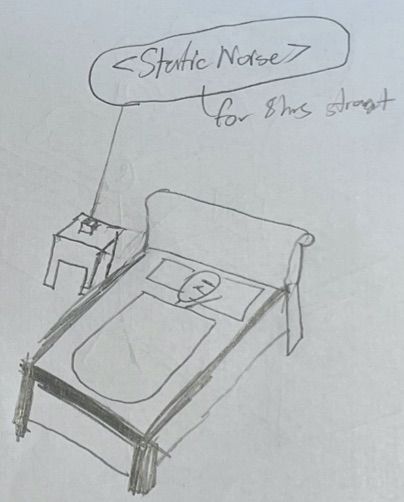 <Static Noise>
for 8hrs straigt